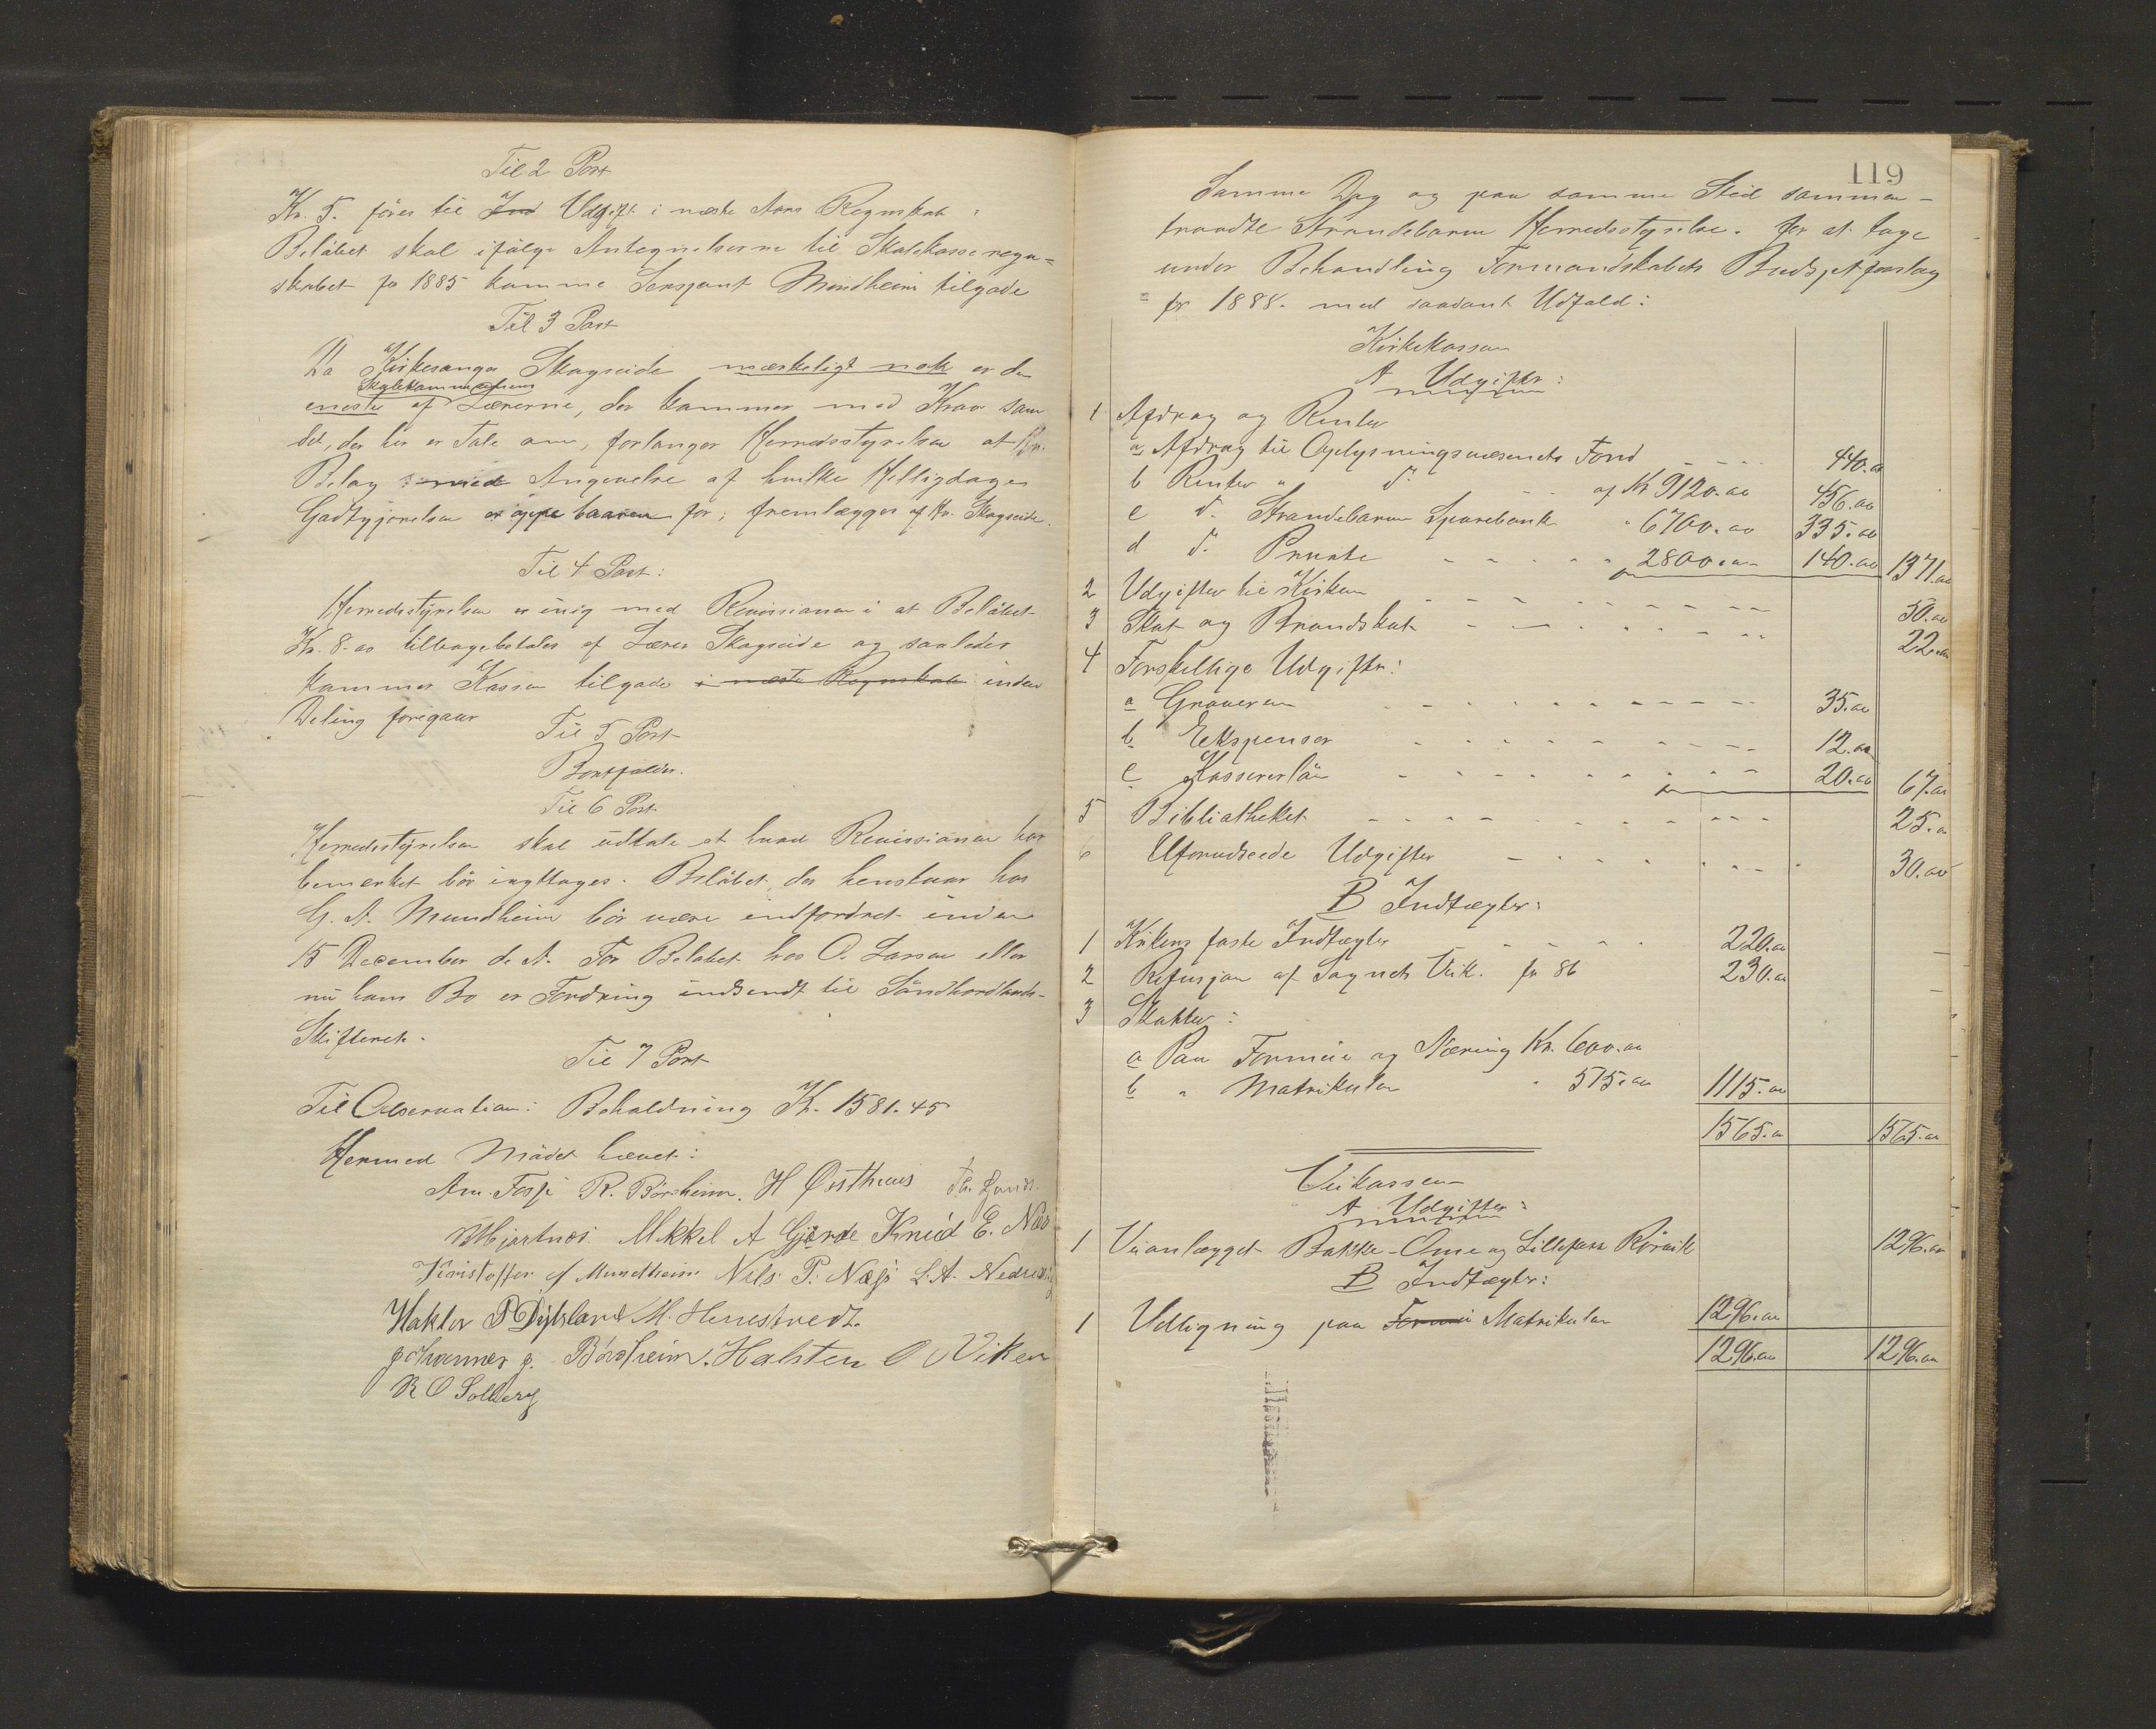 Til 2 Post
Kr. 5. föres til Ind Udgift i næste Aars Regnskab.
Belöbet skal ifölge Antegnelserne til Skolekasseregn=
skabet for 1885 komme Sersjant Mundheim tilgode
Til 3 Post
Da Kirkesanger Skogseide mærkeligt nok er den
eneste af Skolekommunens Lærerne, der kommer med Krav som
det, der her er Tale om, forlanger Herredsstyrelsen at
Belæg med Angivelse af hvilke Helligdage
Godtgjörelsen er oppebaaren for, fremlægges af Hr. Skogseide.
Til 4 Post:
Herredsstyrelsen er enig med Revisionen i at Belöbet
Kr. 8.00 tilbagebetales af Lærer Skogseide og saaledes
kommer Kassen tilgode i næste Regnskab inden
Deling foregaar
Til 5 Post
Bortfalder.
Til 6 Post
Herredsstyrelsen skal udtale at hvad Revisionen har
bemærket bör iagttages. Belöbet, der henstaar hos
G. A. Mundheim bör være indfordret inden
15 December d. A. For Belöbet hos O. Larsen eller
nu hans Bo er Fordring indsendt til Söndhordlands-
Skifteret.
Til 7 Post
Til Observation: Beholdning Kr. 1581.45
Hermed Mödet hævet:
Am. Fosse R. Börsheim. H Østhuus
Hjartnes. Mikkel A Gjerde Knud E. Næs
Kristoffer J Mundheim Nils P. Næsse L. A. Nedrevaag
Haktor P Dybsland M. Henestvedt.
Johannes J. Börsheim. Halsten O Viken
R O Solberg
119
Samme Dag og paa samme Sted sammen-
traadte Strandebarm Herredsstyrelse. for at tage
under Behandling Formandskabets Budsjetforslag
for 1888. med saadant Udfald:
Kirkekassen
A Udgifter:
1 Afdrag og Renter
a Afdrag til Oplysningsvæsenets Fond 440.00
b Renter " do af Kr 9120.00 456.00
c do Strandebarm Sparebank " 6700.00 335.00
d do Private " 2800.00 140.00 1371.00
2 Udgifter til Kirken 50.00
3 Skat og Brandskat 22.00
4 Forskellige Udgifter:
a Graveren 35.00
b Ekspenser 12.00
c Kassererlön 20.00 67.00
5 Bibliotheket 25.00
6 Uforudseede Udgifter 30.00
B Indtægter:
1 Kirkens faste Indtægter 220.00
2 Refusjon af Sognets Veik. for 86 230.00
3 Skatter:
a Paa Formue og Næring Kr. 600.00
b " Matrikulen " 515.00 1115.00
1565.00 1565.00
Veikassen
A Udgifter:
1 Veianlægget Bakke-Ome og Lillefosse Rörvik 1296.00
B Indtægter:
1 Udligning paa Formue Matrikulen 1296.00
1296.00 1296.00